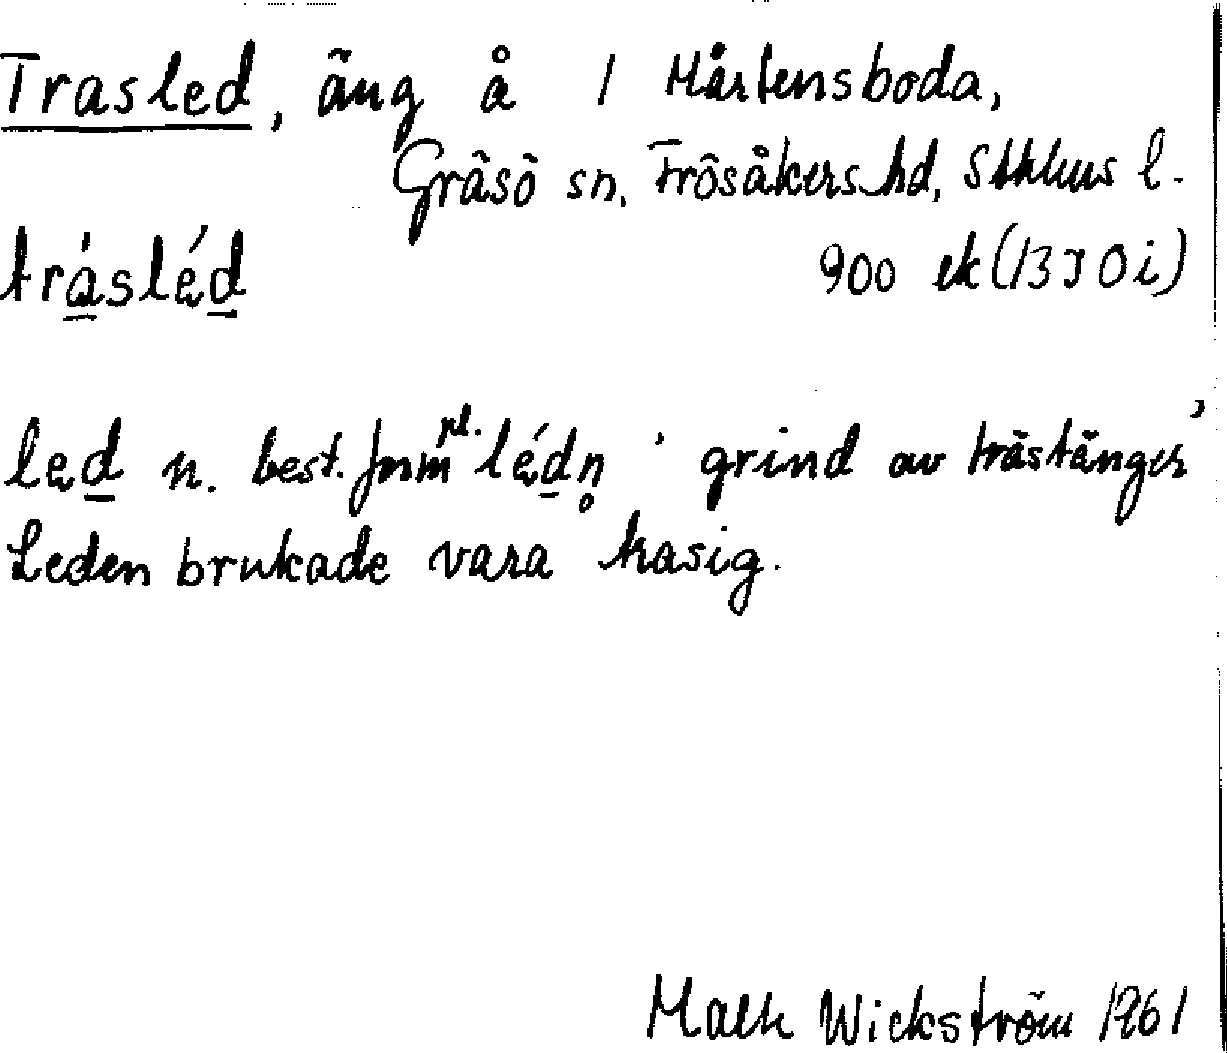 Trasled, äng å 1 Mårtensboda,
Gräsö sn, Frösåkers hd, Sthlms l.
trásléd 900 ek (13J0i)
led n. best. form pl. lédn̥ 'grind av trästänger'
Leden brukade vara trasig.
Wickström 1961